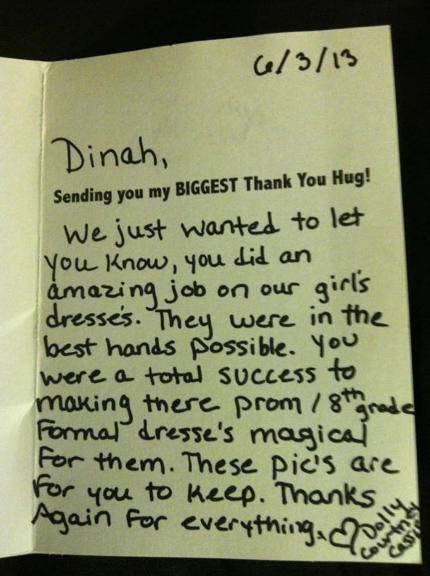 6/3/13
Dinah,
Sending you my BIGGEST Thank You Hug!
We just wanted to let
you know, you did an
amazing job on our girl's
dresse's. They were in the
best hands possible. You
were a total success to
making there prom / 8th grade
Formal dresse's magical
For them. These pic's are
For you to keep. Thanks
Again For everything.
♡ Dolly
Courtney